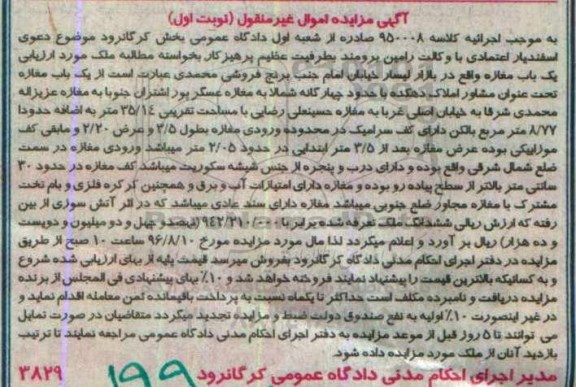 آگهی مزایده اموال غیرمنقول (نوبت اول)
به موجب اجرائیه کلاسه ۹۵۰۰۰۸ صادره از شعبه اول دادگاه عمومی بخش کرگانرود موضوع دعوی
اسفندیار اعتمادی با وکالت رامین برومند بطرفیت عظیم پرهیزکار بخواسته مطالبه ملک مورد ارزیابی
یک باب مغازه واقع در بازار لیسار خیابان امام جنب برنج فروشی محمدی عبارت است از یک باب مغازه
تحت عنوان مشاور املاک دهکده با حدود چهارگانه شمالا به مغازه عسگر پور اشتران جنوبا به مغازه عزیزاله
محمدی شرقا به خیابان اصلی غربا به مغازه حسینعلی رضایی با مساحت تقریبی ۳۵/۱۴ متر به اضافه حدودا
۸/۷۷ متر مربع بالکن دارای کف سرامیک در محدوده ورودی مغازه بطول ۳/۵ و عرض ۲/۲۰ و مابقی کف
موزاییکی بوده عرض مغازه بعد از ۳/۵ متر ابتدایی در حدود ۲/۰۵ متر میباشد ورودی مغازه در سمت
ضلع شمال شرقی واقع بوده و دارای درب و پنجره از جنس شیشه سکوریت میباشد کف مغازه در حدود ۳۰
سانتی متر بالاتر از سطح پیاده رو بوده و مغازه دارای امتیازات آب و برق و همچنین کرکره فلزی و بام تخت
مشترک با مغازه مجاور ضلع جنوبی میباشد مغازه دارای سند عادی میباشد که در اثر آتش سوزی از بین
رفته که ارزش ریالی ششدانگ ملک تعرفه شده برابر با ۹۴۲/۲۱۰/۰۰۰ (نهصدو چهل و دو میلیون و دویست
و ده هزار) ریال بر آورد و اعلام میگردد لذا مال مورد مزایده مورخ ۹۶/۸/۱۰ ساعت ۱۰ صبح از طریق
مزایده در دفتر اجرای احکام مدنی دادگاه کرگانرود بفروش میرسد قیمت پایه از بهای ارزیابی شده شروع
و به کسانیکه بالاترین قیمت را پیشنهاد نمایند فروخته خواهد شد و ۱۰٪ بهای پیشنهادی فی المجلس از برنده
مزایده دریافت و نامبرده مکلف است حداکثر تا یکماه نسبت به پرداخت باقیمانده ثمن معامله اقدام نماید و
در غیر اینصورت ۱۰٪ اولیه به نفع صندوق دولت ضبط و مزایده تجدید میگردد متقاضیان در صورت تمایل
می توانند تا ۵ روز قبل از موعد مزایده به دفتر اجرای احکام مدنی دادگاه عمومی مراجعه نمایند تا ترتیب
بازدید آنان از ملک مورد مزایده داده شود.
مدیر اجرای احکام مدنی دادگاه عمومی کرگانرود ۱۹۹ ۳۸۲۹